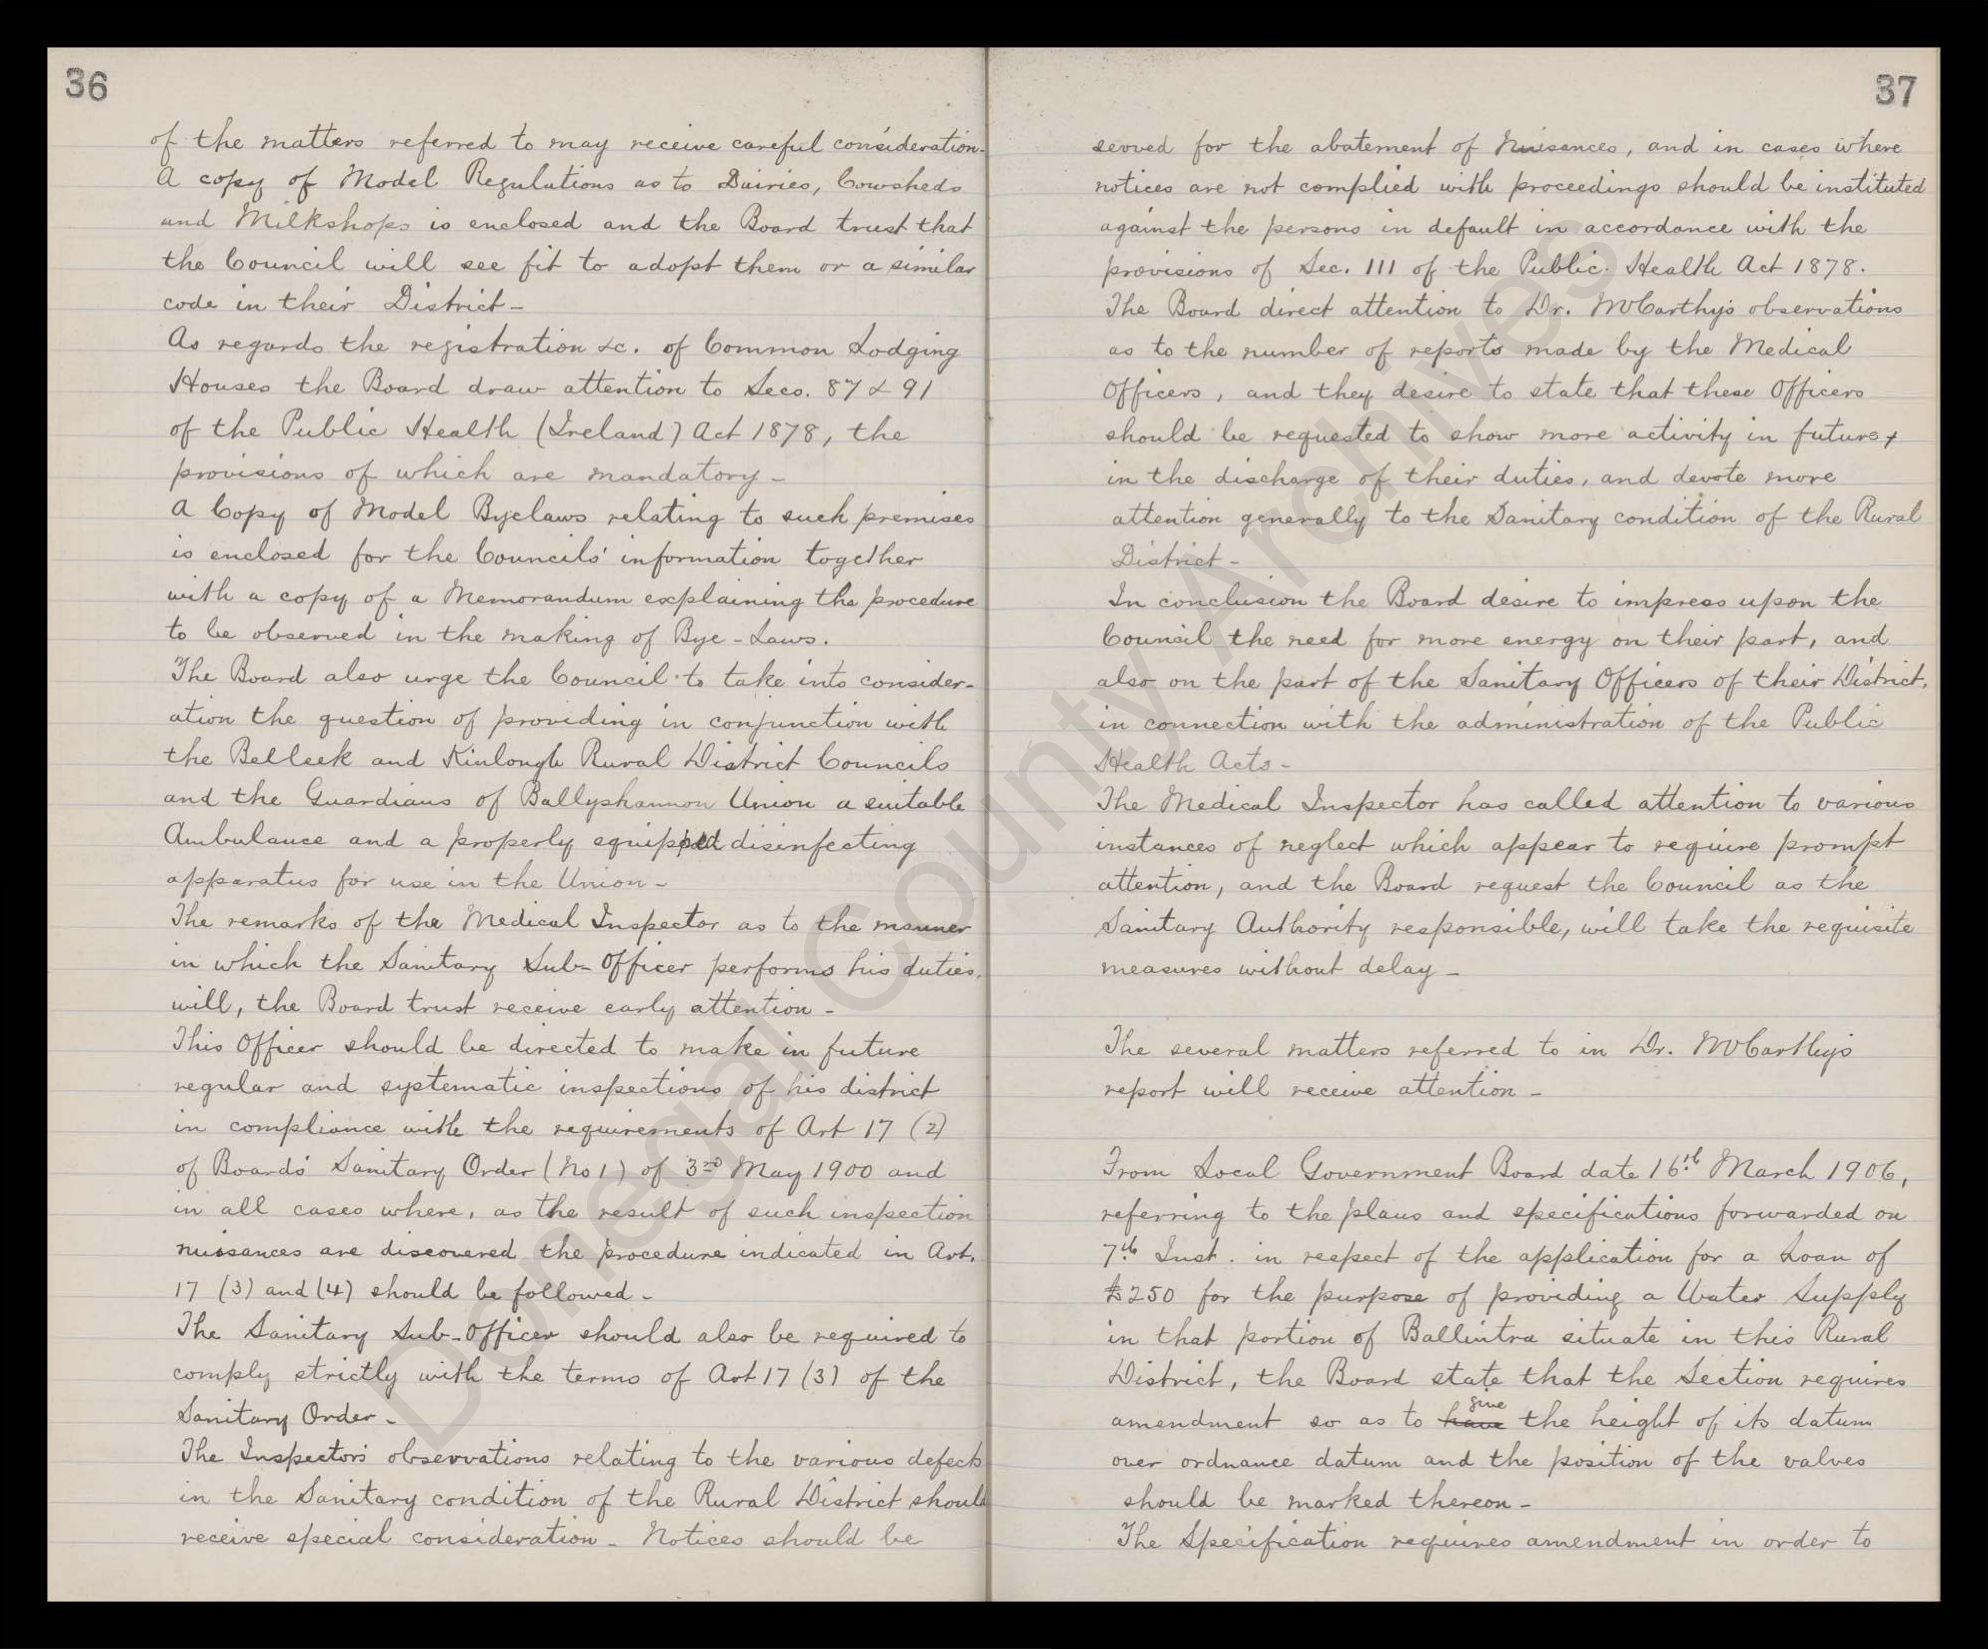 36
of the matters referred to may receive careful consideration.
A copy of Model Regulations as to Dairies, Cowsheds
and Milkshops is enclosed and the Board trust that
the Council will see fit to adopt them or a similar
code in their District -
As regards the registration &c. of Common Lodging
Houses the Board draw attention to Secs. 87 & 91
of the Public Health (Ireland) Act 1878, the
provisions of which are mandatory -
A Copy of Model Byelaws relating to such premises
is enclosed for the Councils' information together
with a copy of a Memorandum explaining the procedure
to be observed in the making of Bye-Laws.
The Board also urge the Council to take into consider-
ation the question of providing in conjunction with
the Belleek and Kinlough Rural District Councils
and the Guardians of Ballyshannon Union a suitable
Ambulance and a properly equipped disinfecting
apparatus for use in the Union -
The remarks of the Medical Inspector as to the manner
in which the Sanitary Sub-Officer performs his duties,
will, the Board trust receive early attention -
This Officer should be directed to make in future
regular and systematic inspections of his district
in compliance with the requirements of Art 17 (2)
of Boards' Sanitary Order (No 1) of 3rd May 1900 and
in all cases where, as the result of such inspection
nuisances are discovered the procedure indicated in Art.
17 (3) and (4) should be followed -
The Sanitary Sub-Officer should also be required to
comply strictly with the terms of Art 17 (3) of the
Sanitary Order -
The Inspector's observations relating to the various defects
in the Sanitary condition of the Rural District should
receive special consideration - Notices should be
37
served for the abatement of Nuisances, and in cases where
notices are not complied with proceedings should be instituted
against the persons in default in accordance with the
provisions of Sec. 111 of the Public Health Act 1878.
The Board direct attention to Dr. McCarthy's observations
as to the number of reports made by the Medical
Officers, and they desire to state that these Officers
should be requested to show more activity in future +
in the discharge of their duties, and devote more
attention generally to the Sanitary condition of the Rural
District -
In conclusion the Board desire to impress upon the
Council the need for more energy on their part, and
also on the part of the Sanitary Officers of their District,
in connection with the administration of the Public
Health Acts -
The Medical Inspector has called attention to various
instances of neglect which appear to require prompt
attention, and the Board request the Council as the
Sanitary Authority responsible, will take the requisite
measures without delay -
The several matters referred to in Dr. McCarthy's
report will receive attention -
From Local Government Board date 16th March 1906,
referring to the plans and specifications forwarded on
7th Inst. in respect of the application for a Loan of
£250 for the purpose of providing a Water Supply
in that portion of Ballintra situate in this Rural
District, the Board state that the Section requires
amendment so as to have give the height of its datum
over ordnance datum and the position of the valves
should be marked thereon -
The Specification requires amendment in order to
Donegal County Archives